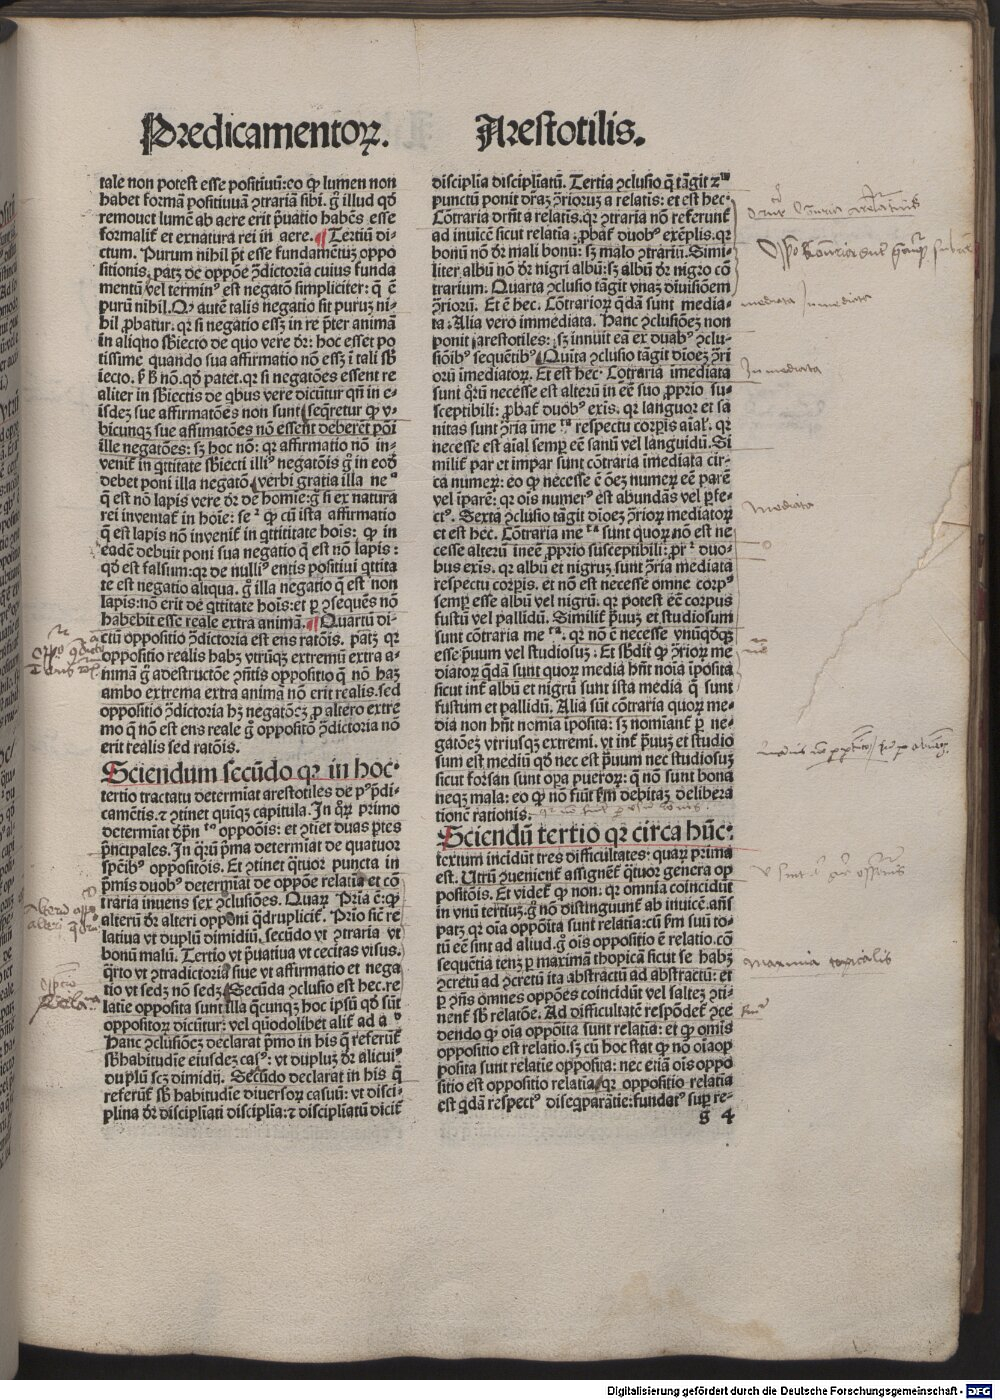 Predicamentoꝝ. Arestotilis.
tale non potest esse positiuū: eo ꝙ lumen non
habet formā positiuuā ↄ̈trariā sibi. g̊ illud qḋ
remouet lumē ab aere erit p̄uatio habēs esse
formaliť et ex natura rei in aere. ¶ Tertiū di-
ctum. Purum nihil p̄t esse fundamētuꝫ oppo
sitionis. patꝫ de oppōe ↄ̄dictoria cuius funda
mentū vel terminꝰ est negatō simpliciter: q̄ ē
purū nihil. Qꝙ autē talis negatio sit puruꝫ ni-
hil ꝓbatur. qꝛ si negatio essꝫ in re p̄ter animā
in aliqno sb̄iecto de quo vere dr̄: hoc esset po
tissime quando sua affirmatio nō essꝫ ī tali sb̄
iecto. ꝑ hͦ nō. qḋ patet. qꝛ si negatōes essent re
aliter in sb̄iectis de qbus vere dicūtur qn̄ in e-
isdeꝫ sue affirmatōes non sunt seq̄retur ꝙ v-
bicunqꝫ sue affimatōes nō essent deberēt poni
ille negatōes: sꝫ hoc nō: qꝛ affirmatio nō in-
veniť in qtitate sb̄iecti illiꝰ negatōis g̊ in eoḋ
debet poni illa negatō verbi gratia illa neᵒ
q̄ est nō lapis vere dr̄ de homīe: g̊ si ex natura
rei inveniať in hoīe: seᷣ ꝙ cū ista affirmatio
q̄ est lapis nō inveniť in qtitate hois: ꝙ in
eadē debuit poni sua negatio q̄ est nō lapis:
qḋ est falsum: qꝛ de nulliꝰ entis positiui qtita
te est negatio aliqua. g̊ illa negatio q̄ est non
lapis: nō erit de qtitate hois: et ꝑ ↄ̄sequēs nō
habebit esse reale extra animā. ¶ Quartū di-
ctū oppositio ↄ̄dictoria est ens ratōis. patꝫ qꝛ
oppositio realis habꝫ vtrūqꝫ extremū extra a-
nimā g̊ a destructōe ↄ̄ntis oppositio q̄ nō haꝫ
ambo extrema extra animā nō erit realis. sed
oppositio ↄ̄dictoria hꝫ negatōeꝫ ꝓ altero extre
mo q̄ nō est ens reale g̊ oppositō ↄ̄dictoria nō
erit realis sed ratōis.
Sciendum secūdo qꝛ in hoc-
tertio tractatu determīat arestotiles de pᵒp̄di-
camētis. ⁊ ↄtinet quīqꝫ capitula. In qr̄ꝝ primo
determīat dr̄n̄ᵗᵒ oppoōis: et ↄtiet duas p̄tes
p̄ncipales. In qr̄ū pͥma determīat de quatuor
sp̄cībꝰ oppositōis. Et ↄtinet qtuor puncta in
pͥmis duobꝰ determīat de oppōe relatīa et cō
traria inuens sex ↄ̄clusiōes. Quaꝝ pͥma ē: ꝙ
alterū dr̄ alteri opponi qdrupliciť. Prīo sic̄ re
latiua vt duplū dimidiū. secūdo vt ↄtraria vt
bonū malū. Tertio vt p̄uatiua vt cecitas visus.
q̄rto vt ↄtradictoria siue vt affirmatio et nega
tio vt sedꝫ nō sedꝫ. Secūda ↄ̄clusio est hec. re
latīe opposita sunt illa q̄cunqꝫ hoc ipsū qḋ sūt
oppositoꝝ dicūtur: vel quodolibet aliť ad aᵈ
Hanc ↄ̄clusiōeꝫ declarat pͥmo in his q̄ referūť
sb̄ habitudīe eiusdeꝫ casꝰ: vt dupluꝫ dr̄ alicuiꝰ
duplū scꝫ dimidij. Secūdo declarat in his q̄
referūť sb̄ habitudīe diuersoꝝ casuū: vt disci-
plina dr̄ disciplīati disciplīa: ⁊ disciplīatū diciť
disciplīa disciplīatū. Tertia ↄ̄clusio q̄ tāgit 2ᵐ
punctū ponit dr̄aꝫ ↄ̄rioruꝫ a relatis: et est hec.
Cōtraria dr̄nt a relatis. qꝛ ↄtraria nō referunť
ad inuicē sicut relatīa: ꝓbať duobꝰ exēplis. qꝛ
bonū nō dr̄ mali bonū: sꝫ malo ↄ̄trariū. Simi-
liter albū nō dr̄ nigri albū: sꝫ albū dr̄ nigro cō
trarium. Quarta ↄ̄clusio tāgit vnaꝫ diuisiōem
ↄ̄rioꝝ. Et ē hec. Cōtrarioꝝ q̄dā sunt media-
ta. Alia vero immediata. Hanc ↄ̄clusiōeꝫ non
ponit arestotiles: sꝫ innuit eā ex duabꝰ ↄ̄clu-
siōibꝰ sequētibꝰ. Quīta ↄ̄clusio tāgit dīoeꝫ ↄ̄ri
orū īmediatoꝝ. Et est hec. Cōtraria īmediata
sunt qr̄ū necesse est alterū in eē suo ꝓprio su-
sceptibili: ꝓbať duobꝰ exīs. qꝛ languor et sa
nitas sunt ↄ̄ria īmeᵗᵃ respectu corpīs aīaĺ. qꝛ
necesse est aīal semꝑ eē sanū vel languidū. Si
miliť par et impar sunt cōtraria īmediata cir-
ca numeꝝ: eo ꝙ necesse ē ōeꝫ numeꝝ eē parē
vel īparē: qꝛ oīs numerꝰ est abundās vel ꝑfe-
ctꝰ. Sexta ↄ̄clusio tāgit dīoeꝫ ↄ̄rioꝝ mediatoꝝ
et est hec. Cōtraria meᵗᵃ sunt quoꝝ nō est ne
cesse alterū inēē ꝓprio susceptibili: ꝓrᷣ duo-
bus exīs. qꝛ albū et nigruꝫ sunt ↄ̄ria mediata
respectu corpīs. et nō est necesse omne corpꝰ
semꝑ esse albū vel nigrū. qꝛ potest eē corpus
fustū vel pallidū. Similiť p̄uuꝫ et studiosum
sunt cōtraria meᵗᵃ. qꝛ nō ē necesse vnūqḋqꝫ
esse p̄uum vel studiosuꝫ. Et sb̄diť ꝙ ↄ̄rioꝝ me
diatoꝝ q̄dā sunt quoꝝ media hn̄t noīa īposita
sicut inť albū et nigrū sunt ista media q̄ sunt
fustum et pallidū. Alia sūt cōtraria quoꝝ me-
dia non hn̄t nomīa īposita: sꝫ nomīanť ꝑ ne-
gatōeꝫ vtriusqꝫ extremi. vt inť p̄uuꝫ et studio
sum est mediū qḋ nec est p̄uum nec studiosuꝫ
sicut forsan sunt oꝑa pueroꝝ: q̄ nō sunt bona
neqꝫ mala: eo ꝙ nō fiūt ẜm debitaꝫ delibera
tionē rationis.
Sciendū tertio qꝛ circa hūc:
textum incidūt tres difficultates: quaꝝ prima
est. Utrū ↄuenienť assigneť qtuor genera op
positōis. Et videť ꝙ non: qꝛ omnia coincidūt
in vnū tertiuꝫ. g̊ nō distinguunť ab inuicē. añs
patꝫ qꝛ oīa oppōita sunt relatīa: cū ẜm suū to-
tū eē sint ad aliud. g̊ oīs oppositio ē relatio. cō
sequētia tenꝫ ꝑ maximā thopicā sicut se habꝫ
ↄ̄cretū ad ↄ̄cretū ita abstractū ad abstractū: et
ꝑ ↄ̄ns omnes oppōes coincidūt vel saltēꝫ ↄti-
nenť sb̄ relatōe. Ad difficultatē respōdeť ↄ̄ce
dendo ꝙ oīa oppōita sunt relatīa: et ꝙ omīs
oppositio est relatio. sꝫ cū hoc stat ꝙ nō oīa op
posita sunt relatīe opposita: nec etiā oīs oppo
sitio est oppositio relatīa qꝛ oppositio relatīa
est qdā respectꝰ diseqꝑarātīe: fundatꝰ suꝑ re-
g 4
mediata Inmediata
Inmediata
Mediata
maxima topicalis
Digitalisierung gefördert durch die Deutsche Forschungsgemeinschaft - DFG